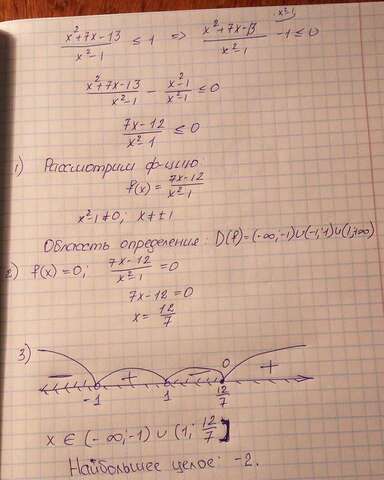 x²-1
x²+7x-13 / x²-1 ≤ 1 => x²+7x-13 / x²-1 -1 ≤ 0
x²+7x-13 / x²-1 - x²-1 / x²-1 ≤ 0
7x-12 / x²-1 ≤ 0
1) Рассмотрим ф-цию
f(x) = 7x-12 / x²-1
x²-1≠0; x≠±1
Область определения: D(f)=(-∞,-1)∪(-1;1)∪(1;+∞)
2) f(x)=0; 7x-12 / x²-1 = 0
7x-12=0
x= 12/7
3)
- + - 0 +
-1 1 12/7
x ∈ (-∞;-1) ∪ (1; 12/7]
Наибольшее целое: -2.